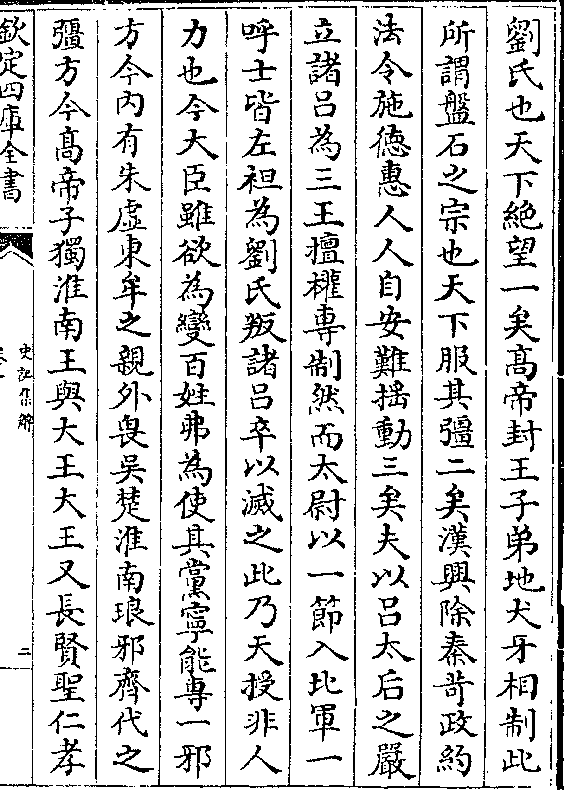 劉氏也天下絶望一矣髙帝封王子弟地犬牙相制此
所謂盤石之宗也天下服其彊二矣漢興除秦苛政約
法令施徳惠人人自安難揺動三矣夫以吕太后之嚴
立諸吕為三王擅權專制然而太尉以一節入北軍一
呼士皆左袒為劉氏叛諸吕卒以滅之此乃天授非人
力也今大臣雖欲為變百姓弗為使其黨寧能專一邪
方今内有朱虚東牟之親外畏吳楚淮南琅邪齊代之
彊方今髙帝子獨淮南王與大王大王又長賢聖仁孝
欽定四庫全書
史記集解
二